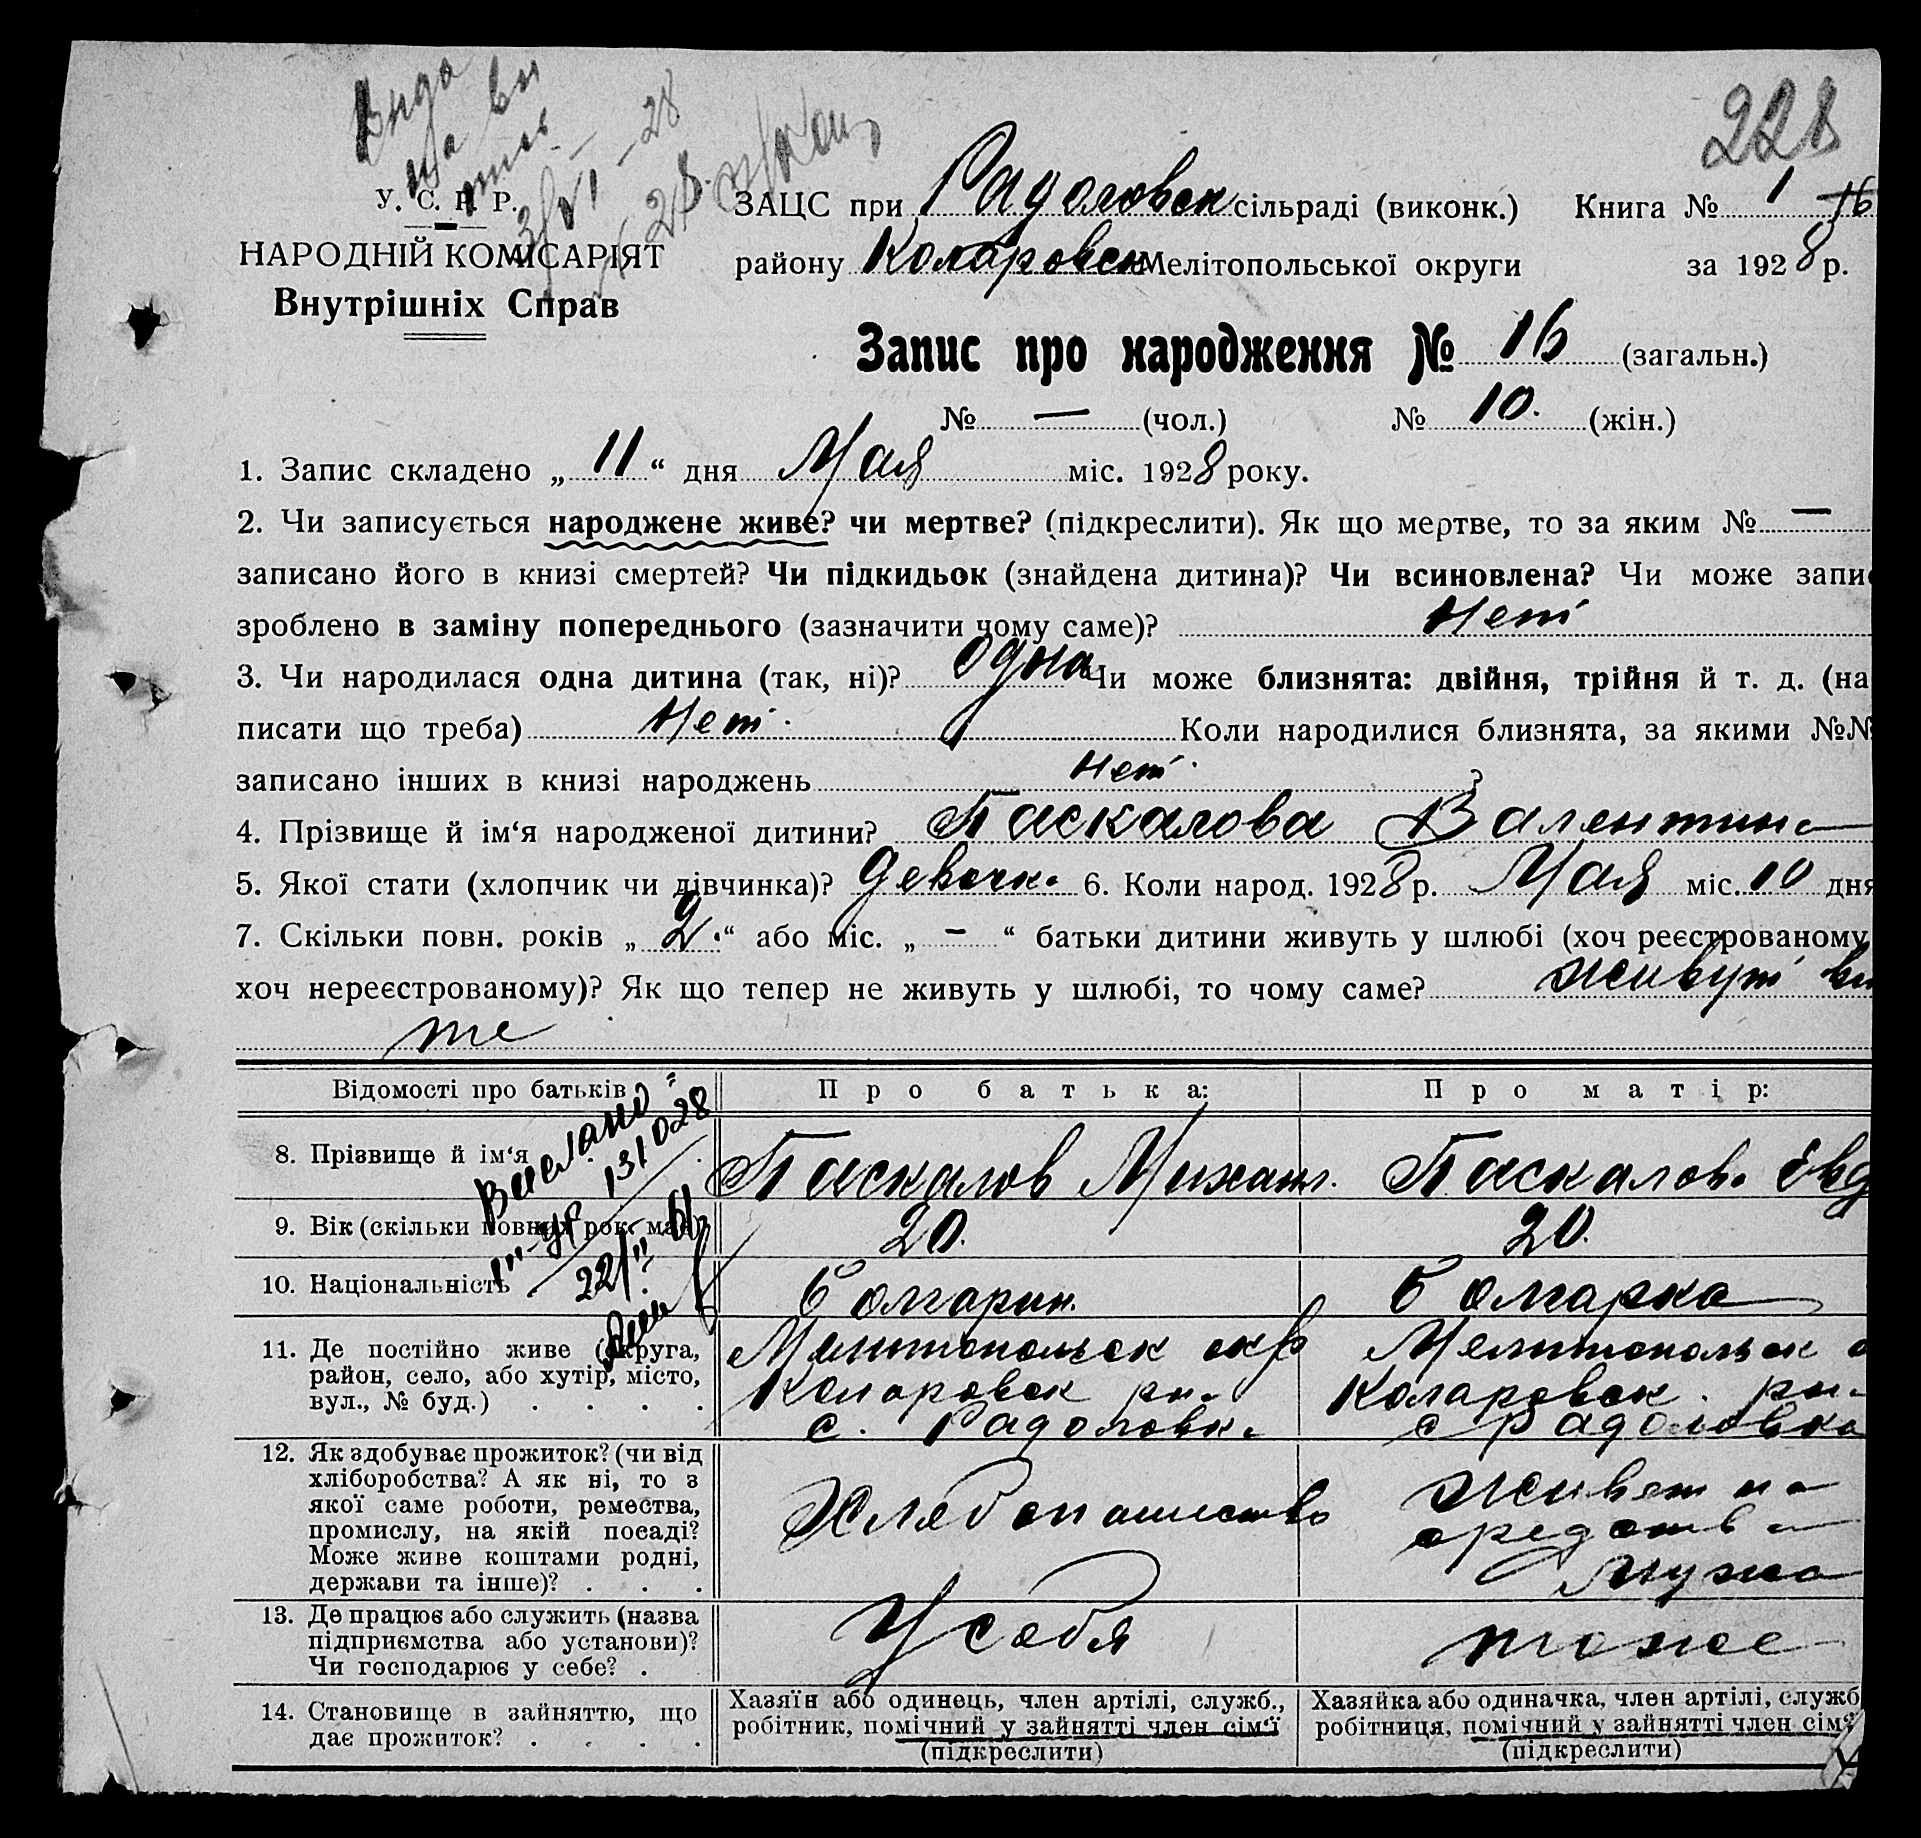 228
У. С. Р. Р.
НАРОДНІЙ КОМІСАРІЯТ
Внутрішніх Справ
ЗАЦС при Радоловск сільраді (виконк.) Книга № 1
району Коларовск Мелітопольської округи за 1928 р.
Запис про народження № 16 (загальн.)
№ — (чол.) № 10. (жін.)
1. Запис складено „ 11 “ дня Мая міс. 1928 року.
2. Чи записується народжене живе? чи мертве? (підкреслити). Як що мертве, то за яким № —
записано його в книзі смертей? Чи підкидьок (знайдена дитина)? Чи всиновлена? Чи може запи
зроблено в заміну попереднього (зазначити чому саме)? Нет
3. Чи народилася одна дитина (так, ні)? одна Чи може близнята: двійня, трійня й т. д. (на
писати що треба) Нет. Коли народилися близнята, за якими №№
записано інших в книзі народжень Нет. ?
4. Прізвище й ім‘я народженої дитини? Паскалова Валентина
5. Якої стати (хлопчик чи дівчинка)? девочка 6. Коли народ. 1928 р. Мая міс. 10 дня
7. Скільки повн. років „ 2. “ або міс. „ — “ батьки дитини живуть у шлюбі (хоч реєстрованому
хоч нереєстрованому)? Як що тепер не живуть у шлюбі, то чому саме? живут вм
те
Відомості про батьків Про батька: Про матір:
8. Прізвище й ім‘я Паскалов Михаил. Паскалова Евд
9. Вік (скільки повних рок. має) 20. 20.
10. Національність Болгарин. Болгарка
11. Де постійно живе (округа,
район, село, або хутір, місто,
вул., № буд.)
Мелитопольск окр
Коларовск рна
с. Радоловка
Мелитопольск о
Коларовск. рна
с Радоловка
12. Як здобуває прожиток? (чи від
хліборобства? А як ні, то з
якої саме роботи, ремества,
промислу, на якій посаді?
Може живе коштами родні,
держави та інше)?
Хлебопашество
Живет на
средства
мужа
13. Де працює або служить (назва
підприємства або установи)?
Чи господарює у себе?
У себя
тоже
14. Становище в зайняттю, що
дає прожиток?
Хазяїн або одинець, член артілі, служб.,
робітник, помічний у зайнятті член сім‘ї
(підкреслити)
Хазяйка або одиначка, член артілі, служб
робітниця, помічний у зайнятті член сім‘ї
(підкреслити)
Выслано
131028